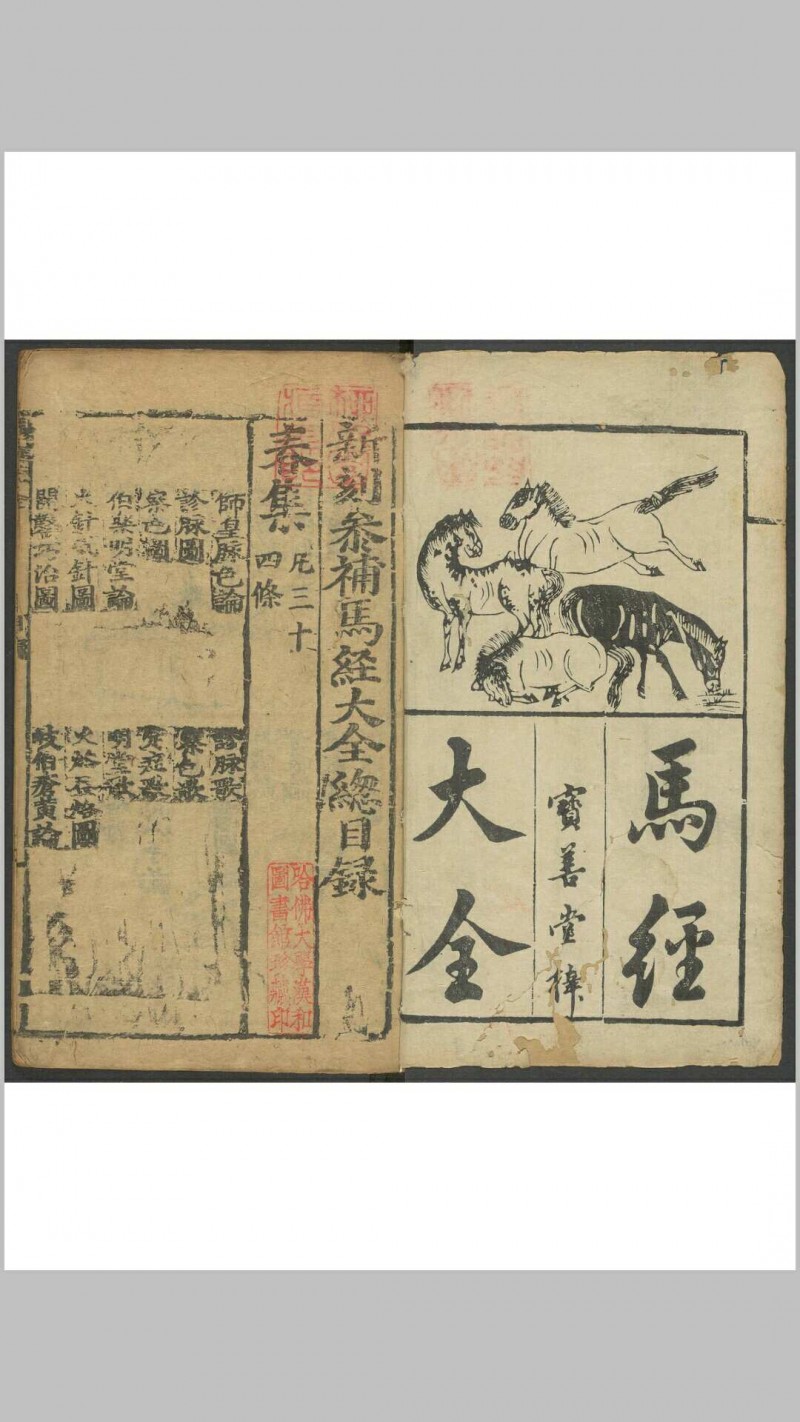 馬經
寶善堂梓
大全
新刻參補馬経大全總目録
春集 凡三十四條
師皇脉色論
診脉歌
診脉圖
察色歌
察色圖
伯樂明堂論
明堂歌
火針氣針圖
火烙石烙圖
開𩠌巧治圖
岐伯瘡黃論
哈佛大學漢和
圖書館珍藏印